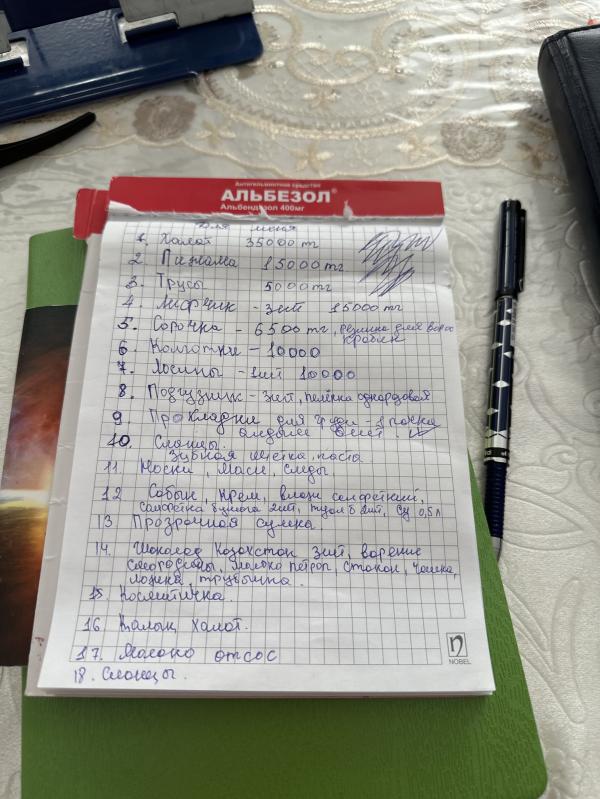 Антигельминтное средство
АЛЬБЕЗОЛ®
Альбендазол 400мг
Для меня
1. Халат 35000 тг
2 Пижама 15000 тг
3. Трусы 5000 тг
4. Лифчик - 3шт 15000 тг
5. Сорочка - 6500 тг, резинка для волос
крабик
6 Колготки - 10000
7. Лосины - 1шт 10000
8. Подгузник - 3шт, пелёнка одноразовая
9. Прокладки для груди - 1 пачка
10. Сланцы.
Зубная щетка, паста
11 Носки, Масла, следы
12 Собын, крем, влажн салфеткий,
салфетка бумага 2шт, туал б 2шт, су 0,5 л
13 Прозрачная сумка
14. Шоколад Казахстан 3шт, варение
смородины, молоко петроп, стакан, чашка,
ложка, трубычка.
15 Косметичка.
16 Қалың халат.
17. Молоко отсос
18. Сланцы.
NOBEL